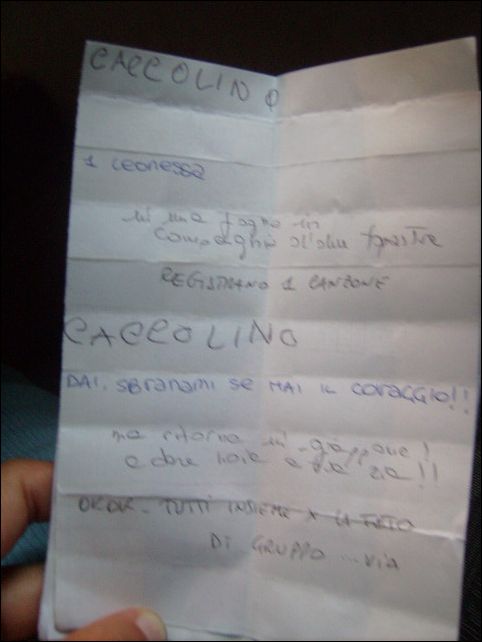 CACCOLINO
1 leonessa
in una fogna in
compagnia di
REGISTRANO 1 CANZONE
CACCOLINO
DAI, SBRANAMI SE HAI IL CORAGGIO!!
ma ritorna in giappone!
e
OKOK - TUTTI INSIEME X LA FOTO
DI GRUPPO ... VIA